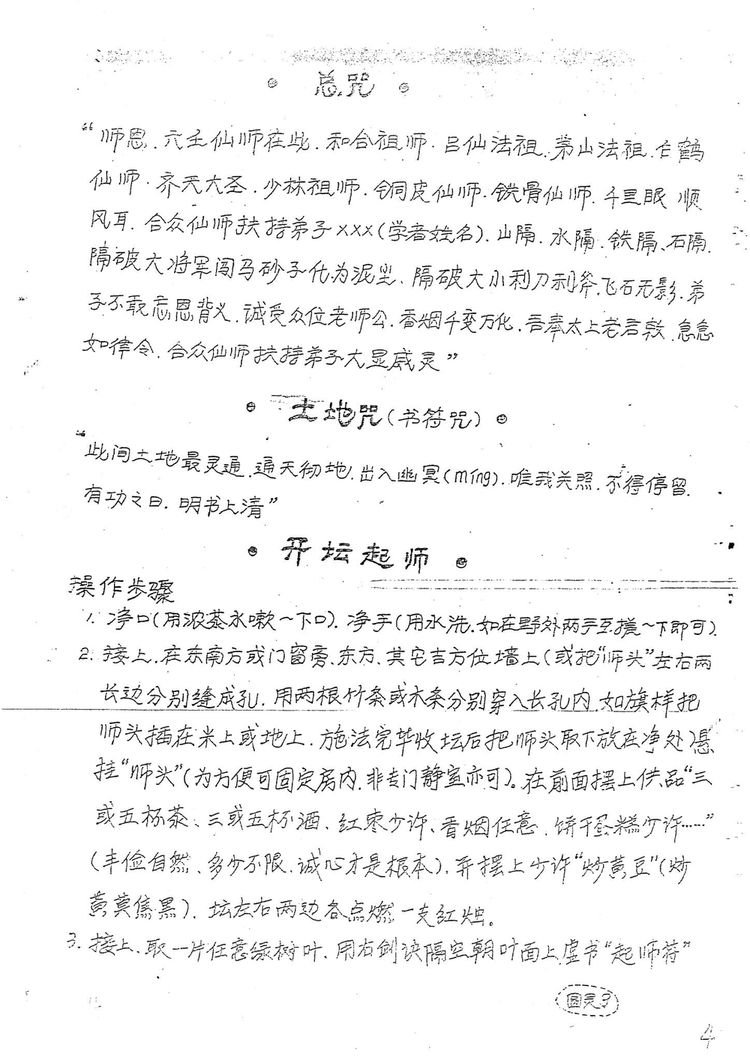 总咒
“师恩、六壬仙师在此、和合祖师、吕仙法祖、茅山法祖、白鹤
仙师、齐天大圣、少林祖师、铜皮仙师、铁骨仙师、千里眼 顺
风耳、合众仙师扶持弟子×××(学者姓名)、山隔、水隔、铁隔、石隔、
隔破大将军闯马砂子化为泥尘、隔破大小利刀利斧、飞石无影、弟
子不敢忘恩背义、诚受众位老师公、香烟千变万化、吾奉太上老君敕、急急
如律令、合众仙师扶持弟子大显威灵”
土地咒(书符咒)
“此间土地最灵通、通天彻地、出入幽冥(míng)、唯我关照、不得停留、
有功之日、明书上清”
开坛起师
操作步骤
1. 净口(用浓茶水嗽一下口)、净手(用水洗、如在野外两手互搓一下即可)
2. 接上、在东南方或门窗旁、东方、其它吉方位墙上(或把“师头”左右两
长边分别缝成孔、用两根竹条或木条分别穿入长孔内、如旗样把
师头插在米上或地上、施法完毕收坛后把师头取下放在净处)悬
挂“师头”(为方便可固定房内、非专门静室亦可)。在前面摆上供品“三
或五杯茶、三或五杯酒、红枣少许、香烟任意、饼干蛋糕少许……”
(丰俭自然、多少不限、诚心才是根本)、并摆上少许“炒黄豆”(炒
黄莫焦黑)、坛左右两边各点燃一支红烛。
3. 接上、取一片任意绿树叶、用右剑诀隔空朝叶面上虚书“起师符”
圆灵子
4